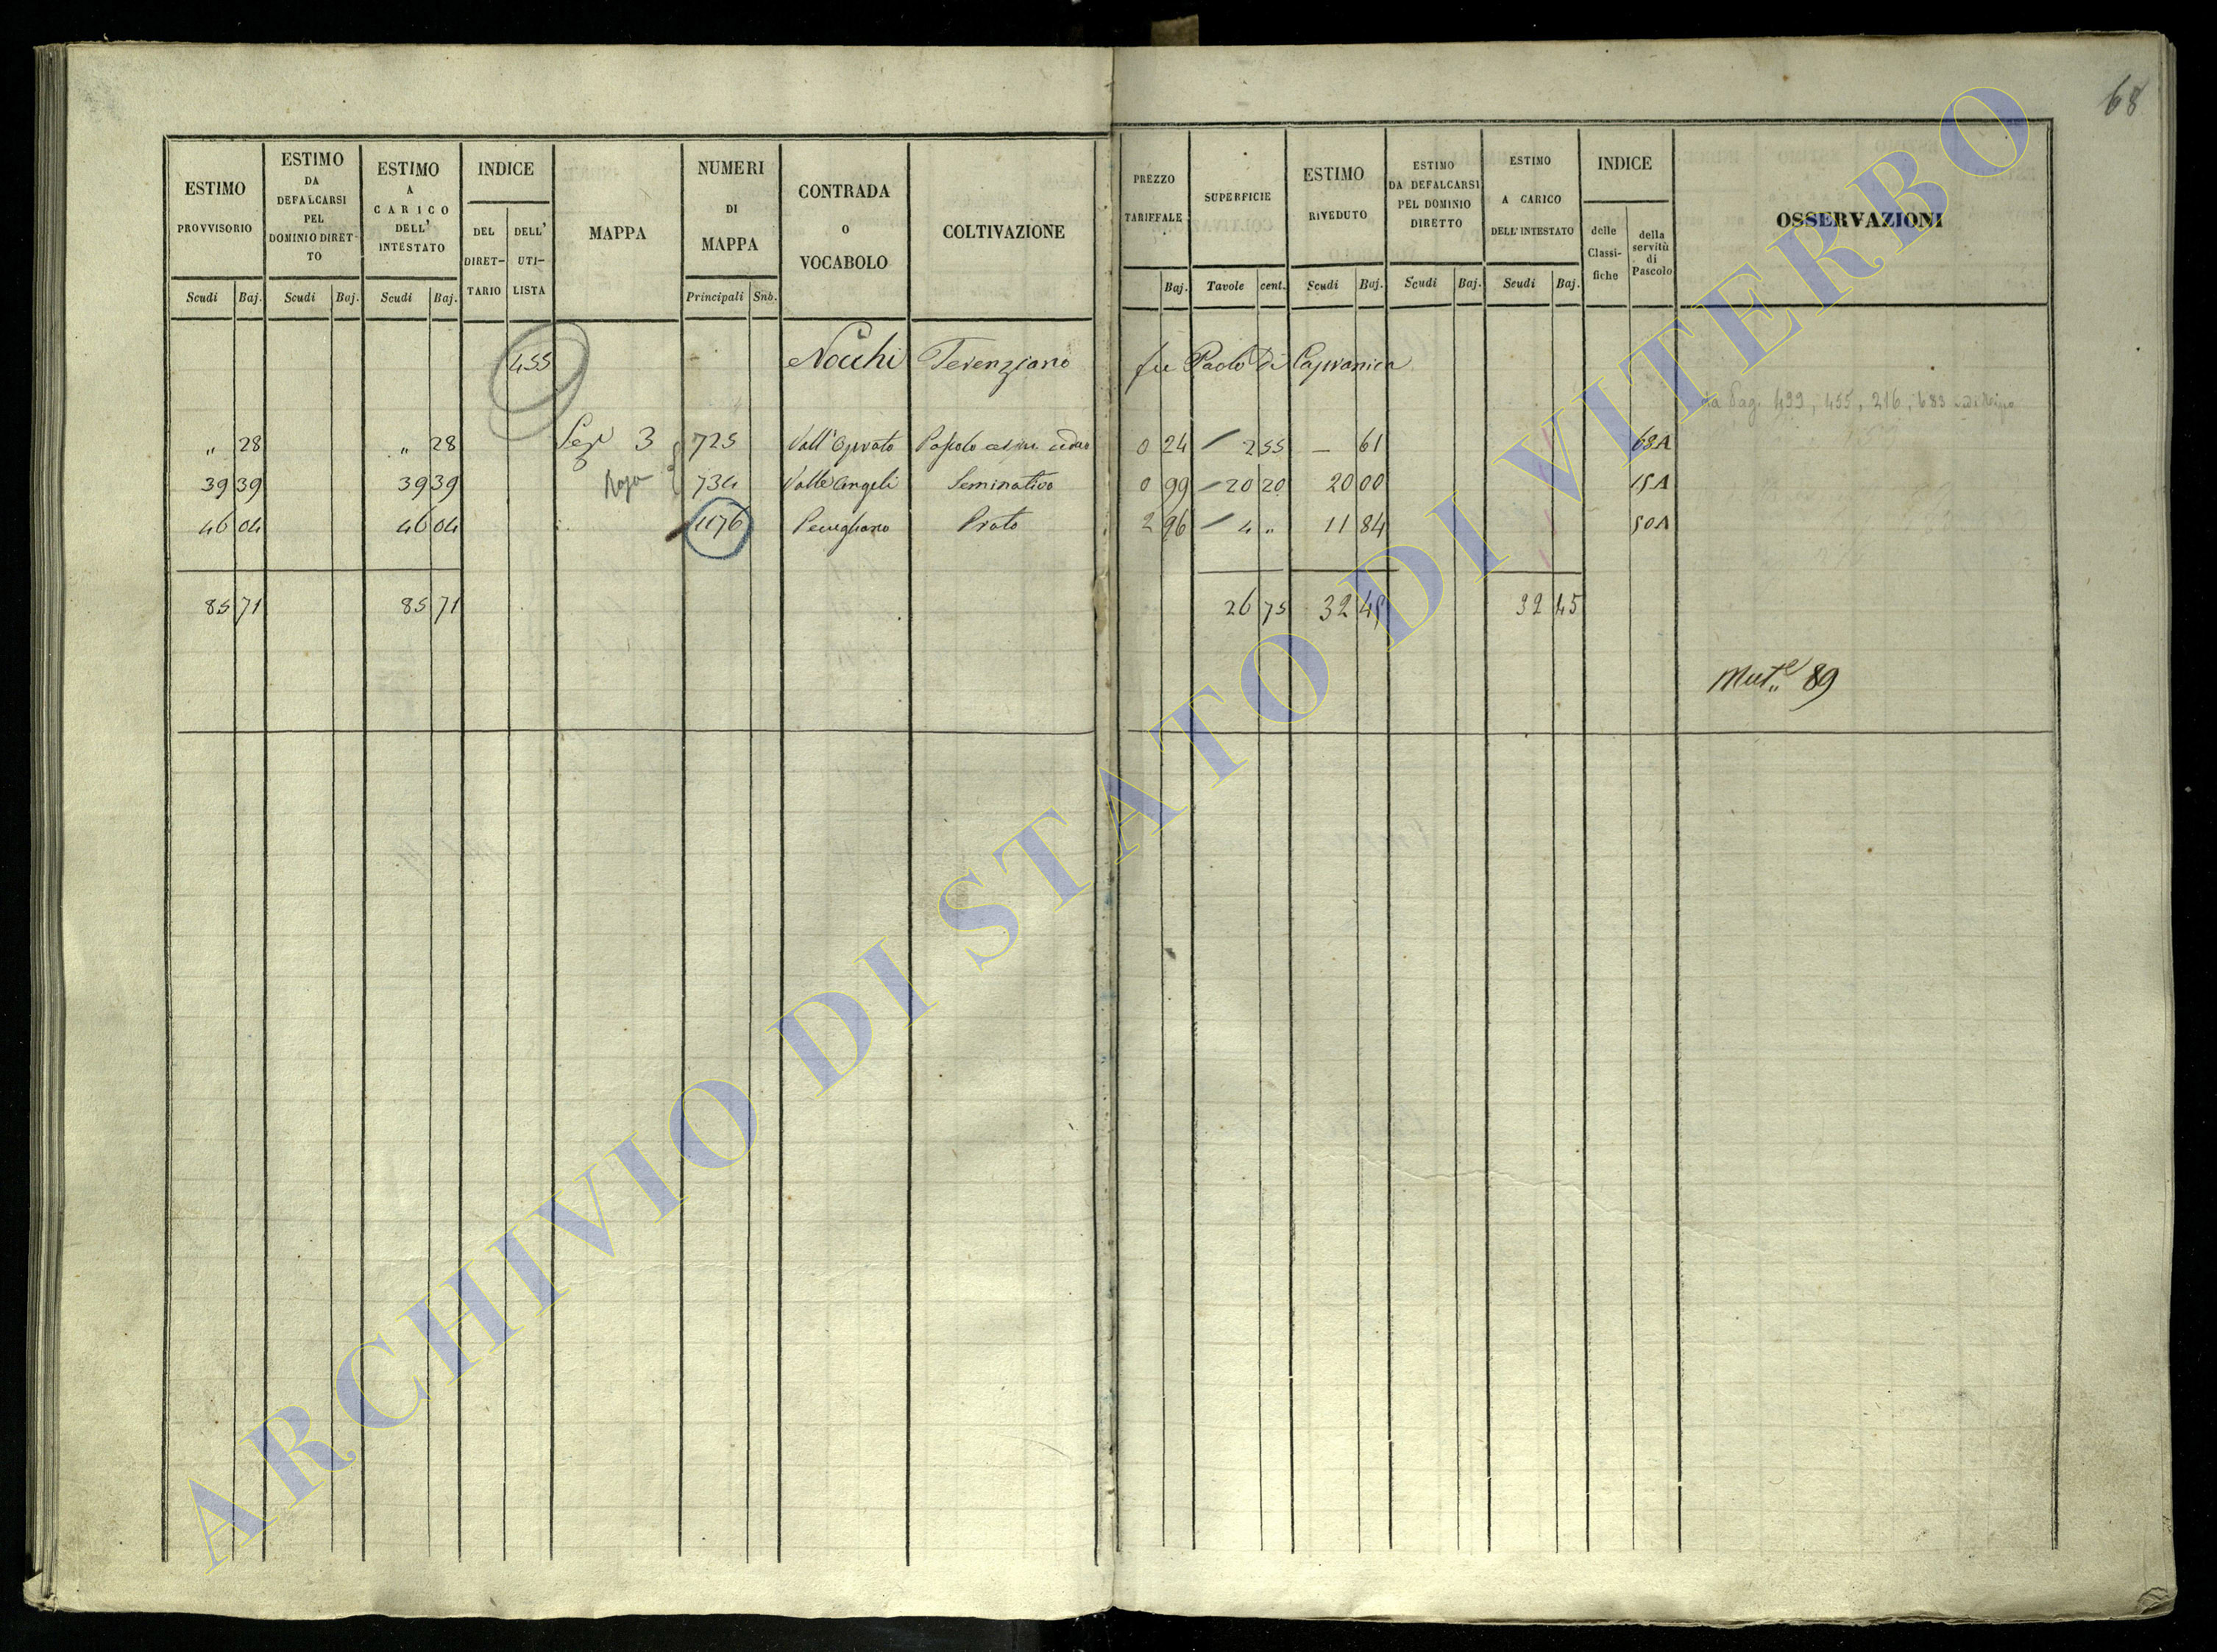 68
ESTIMO PROVVISORIO Scudi Baj.
ESTIMO DA DEFALCARSI PEL DOMINIO DIRET-TO Scudi Baj.
ESTIMO A CARICO DELL' INTESTATO Scudi Baj.
INDICE DEL DIRET-TARIO DELL' UTI-LISTA
MAPPA
NUMERI DI MAPPA Principali Sub.
CONTRADA O VOCABOLO
COLTIVAZIONE
PREZZO TARIFFALE Baj.
SUPERFICIE Tavole cent.
ESTIMO RIVEDUTO Scudi Baj.
ESTIMO DA DEFALCARSI PEL DOMINIO DIRETTO Scudi Baj.
ESTIMO A CARICO DELL' INTESTATO Scudi Baj.
INDICE delle Classi-fiche della servitù di Pascolo
OSSERVAZIONI
455 Nocchi Terenziano fu Paolo di Capranica
da Pag. 499, 455, 216, 683
" 28 " 28 Sez 3 725 Pascolo 0 24 2 55 — 61 68A
39 39 39 39 734 Valle Angeli Seminativo 0 99 20 20 20 00 15A
46 04 46 04 1176 Prato 2 96 4 " 11 84 50A
85 71 85 71 26 75 32 45 32 45
Mut.e 89
ARCHIVIO DI STATO DI VITERBO